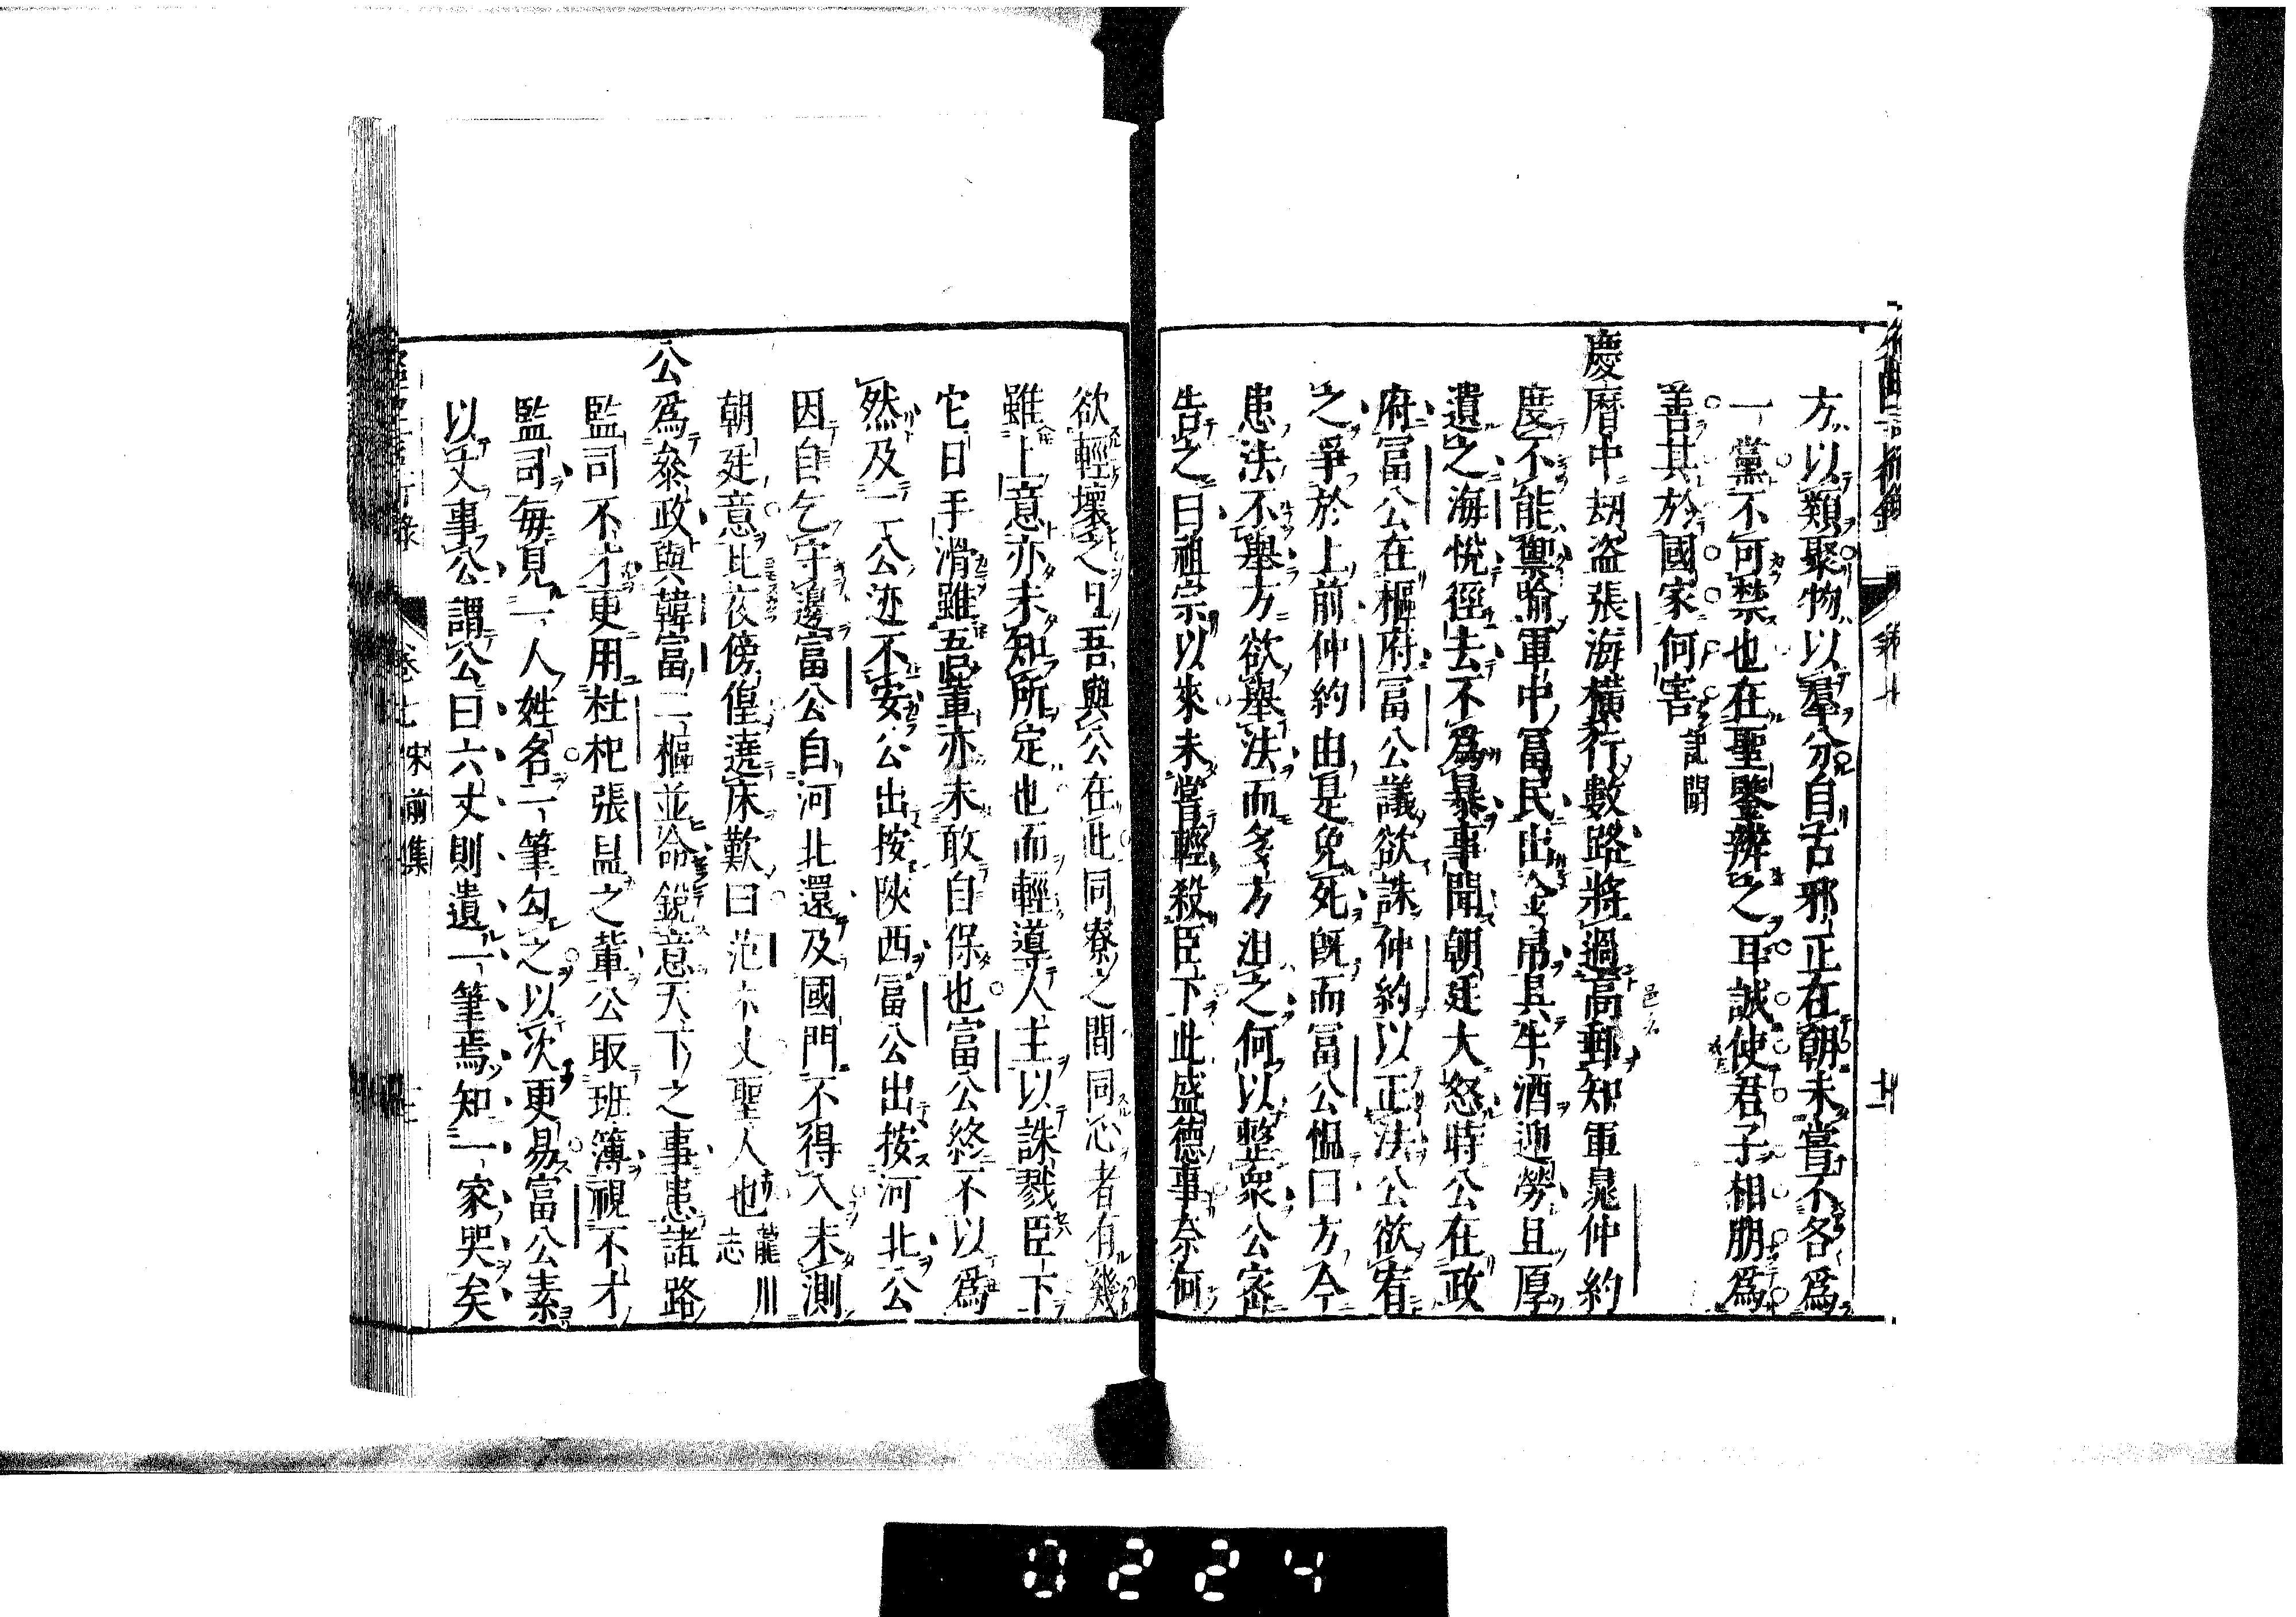 方以類聚物以羣分自古邪正在朝未嘗不各爲
一黨不可禁也在聖鑒辨之耳誠使君子相朋爲
善其於國家何害記聞
慶曆中劫盗張海横行數路將過高郵知軍晁仲約
度不能禦喻軍中冨民出金帛具牛酒迎勞且厚
遺之海悅徑去不爲暴事聞朝廷大怒時公在政
府冨公在樞府冨公議欲誅仲約以正法公欲宥
之爭於上前仲約由是免死旣而冨公慍曰方今
患法不舉方欲舉法而多方沮之何以整衆公宻
告之曰祖宗以來未嘗輕殺臣下此盛德事奈何
欲輕壞之且吾與公在此同寮之間同心者有幾
雖上意亦未知所定也而輕導人主以誅戮臣下
它日手滑雖吾輩亦未敢自保也富公終不以爲
然及二公迹不安公出按陜西冨公出按河北公
因自乞守邊富公自河北還及國門不得入未測
朝廷意比夜傍偟遶床歎曰范六丈聖人也龍川志
公爲叅政與韓富二樞並命銳意天下之事患諸路
監司不才更用杜杞張昷之輩公取班簿視不才
監司每見一人姓名一筆勾之以次更易富公素
以丈事公謂公曰六丈則遺一筆焉知一家哭矣
卷七 宋前集
0224